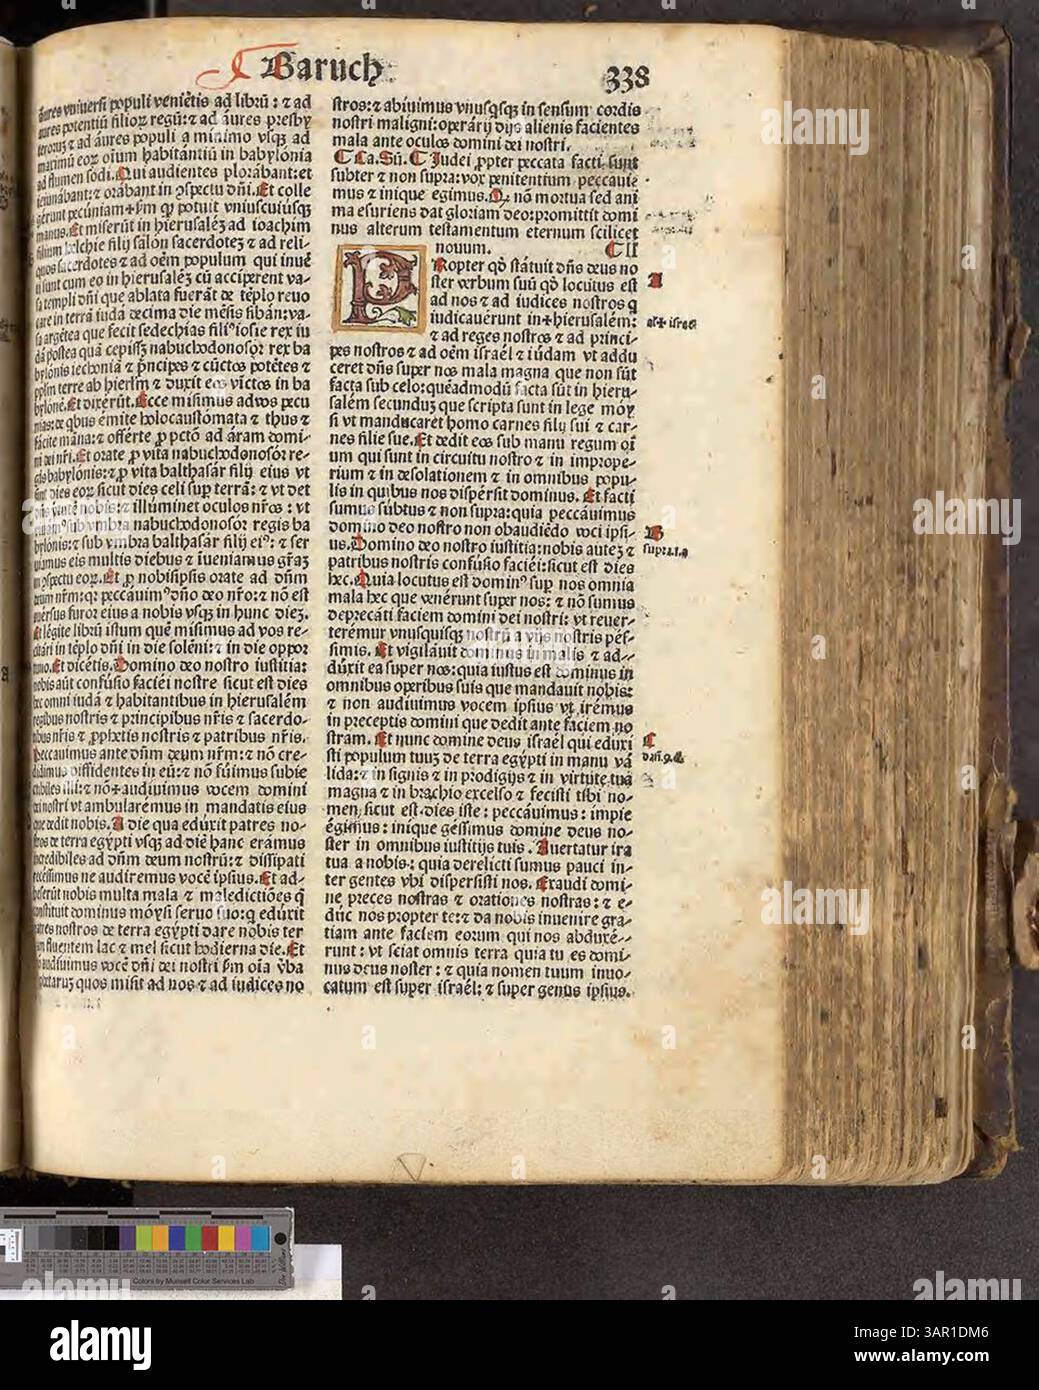 Baruch
338
aures vniuersi populi veniẽtis ad librũ: ⁊ ad
aures potentiũ filioꝝ regũ: ⁊ ad aures presby
teroꝝ: ⁊ ad aures populi a minimo vsqꝫ ad
maximũ eoꝝ oĩum habitantiũ in babylonia
ad flumen sodi. Qui audientes plorabant: et
ieiunabant: ⁊ orabant in ꝯspectu dñi. Et colle
gerunt pecuniam
manus. Et miserũt in hierusalẽ ad ioachim
filium helchie filij salon sacerdotẽ ⁊ ad reli-
quos sacerdotes ⁊ ad oẽm populum qui inuẽ
ti sunt cum eo in hierusalẽ cũ acciperent va-
sa templi dñi que ablata fuerãt de tẽplo reuo
care in terrã iuda decima die mensis
sa argẽtea que fecit sedechias filiꝰ iosie rex iu
da postea quã cepisset nabuchodonosor rex ba
bylonis iechoniã ⁊ prĩcipes ⁊ cũctos potẽtes ⁊
pplm terre ab hierlm ⁊ duxit eos vĩctos in ba
bylonẽ. Et dixerũt. Ecce misimus ad vos pecu
nias: de qbus emite holocaustomata ⁊ thus ⁊
facite mãna: ⁊ offerte ꝓ pctõ ad aram domi-
ni dei nr̃i. Et orate ꝓ vita nabuchodonosor re-
gis babylonis: ⁊ ꝓ vita balthasar filij eius vt
sint dies eoꝝ sicut dies celi sup terrã: ⁊ vt det
dñs nobis: ⁊ illuminet oculos nr̃os: vt
sub vmbra nabuchodonosor regis ba
bylonis: ⁊ sub vmbra balthasar filij eiꝰ: ⁊ ser
uiamus eis multis diebus ⁊ inueniamus grãꝫ
in ꝯspectu eoꝝ. Et ꝓ nobisipsis orate ad dñm
deum nrm: qꝛ peccauimꝰ dño deo nr̃o: ⁊ nõ est
auersus furor eius a nobis vsqꝫ in hunc diem.
Et legite librũ istum quẽ misimus ad vos re-
citari in tẽplo dñi in die solẽni: ⁊ in die oppor
tuno. Et dicetis. Domino deo nostro iustitia:
nobis aũt confusio faciei nostre sicut est dies
hec omni iuda ⁊ habitantibus in hierusalem
regibus nostris ⁊ principibus nr̃is ⁊ sacerdo-
tibus nr̃is ⁊ ꝓphetis nostris ⁊ patribus nr̃is.
Peccauimus ante dñm deum nrm: ⁊ nõ cre-
didimus diffidentes in eũ: ⁊ nõ fuimus subie
ctibiles illi: ⁊ nõ audiuimus vocem domini
dei nostri vt ambularemus in mandatis eius
que dedit nobis. A die qua eduxit patres no-
stros de terra egypti vsqꝫ ad diẽ hanc eramus
incredibiles ad dñm deum nostrũ: ⁊ dissipati
recessimus ne audiremus vocẽ ipsius. Et ad-
heserũt nobis multa mala ⁊ maledictiões q̃
constituit dominus moysi seruo suo: q̃ eduxit
patres nostros de terra egypti dare nobis ter
ram fluentem lac ⁊ mel sicut hodierna die. Et
nõ audiuimus vocẽ dñi dei nostri ẞm oĩa v̄ba
ꝓphetarũ quos misit ad nos ⁊ ad iudices no
stros: ⁊ abiuimus vnusqsqꝫ in sensum cordis
nostri maligni: operarij dijs alienis facientes
mala ante oculos domini dei nostri.
¶ Ca. Sũ. ¶ Iudei ꝓpter peccata facti sunt
subter ⁊ non supra: vox penitentium peccaui-
mus ⁊ inique egimus. Qꝛ nõ mortua sed ani
ma esuriens dat gloriam deo: promittit domi
nus alterum testamentum eternum scilicet
nouum. ¶ II
PRopter qđ statuit dñs deus no
ster verbum suũ qđ locutus est
ad nos ⁊ ad iudices nostros q
iudicauerunt in hierusalem:
⁊ ad reges nostros ⁊ ad princi-
pes nostros ⁊ ad oẽm israel ⁊ iudam vt addu
ceret dñs super nos mala magna que non sũt
facta sub celo: quẽadmodũ facta sũt in hieru-
salem secundũ que scripta sunt in lege moy
si vt manducaret homo carnes filij sui ⁊ car-
nes filie sue. Et dedit eos sub manu regum oĩ
um qui sunt in circuitu nostro ⁊ in imprope-
rium ⁊ in desolationem ⁊ in omnibus popu-
lis in quibus nos dispersit dominus. Et facti
sumus subtus ⁊ non supra: quia peccauimus
domino deo nostro non obaudiẽdo voci ipsi-
us. Domino deo nostro iustitia: nobis autem ⁊
patribus nostris confusio faciei: sicut est dies
hec. Quia locutus est dominꝰ sup nos omnia
mala hec que venerunt super nos: ⁊ nõ sumus
deprecati faciem domini dei nostri: vt reuer-
teremur vnusquisqꝫ nostrũ a vijs nostris pes-
simis. Et vigilauit dominus in malis ⁊ ad-
duxit ea super nos: quia iustus est dominus in
omnibus operibus suis que mandauit nobis:
⁊ non audiuimus vocem ipsius vt iremus
in preceptis domini que dedit ante faciem no
stram. Et nunc domine deus israel qui eduxi
sti populum tuum de terra egypti in manu va
lida: ⁊ in signis ⁊ in prodigijs ⁊ in virtute tua
magna ⁊ in brachio excelso ⁊ fecisti tibi no-
men sicut est dies iste: peccauimus: impie
egimus: inique gessimus domine deus no-
ster in omnibus iustitijs tuis. Auertatur ira
tua a nobis: quia derelicti sumus pauci in-
ter gentes vbi dispersisti nos. Exaudi domi-
ne preces nostras ⁊ orationes nostras: ⁊ e-
duc nos propter te: ⁊ da nobis inuenire gra-
tiam ante faciem eorum qui nos abduxe-
runt: vt sciat omnis terra quia tu es domi-
nus deus noster: ⁊ quia nomen tuum inuo-
catum est super israel: ⁊ super genus ipsius.
A
B
sup. 1. a
C
dañ. 9. d.
Colors by Munsell Color Services Lab
alamy
Image ID: 3AR1DM6
www.alamy.com